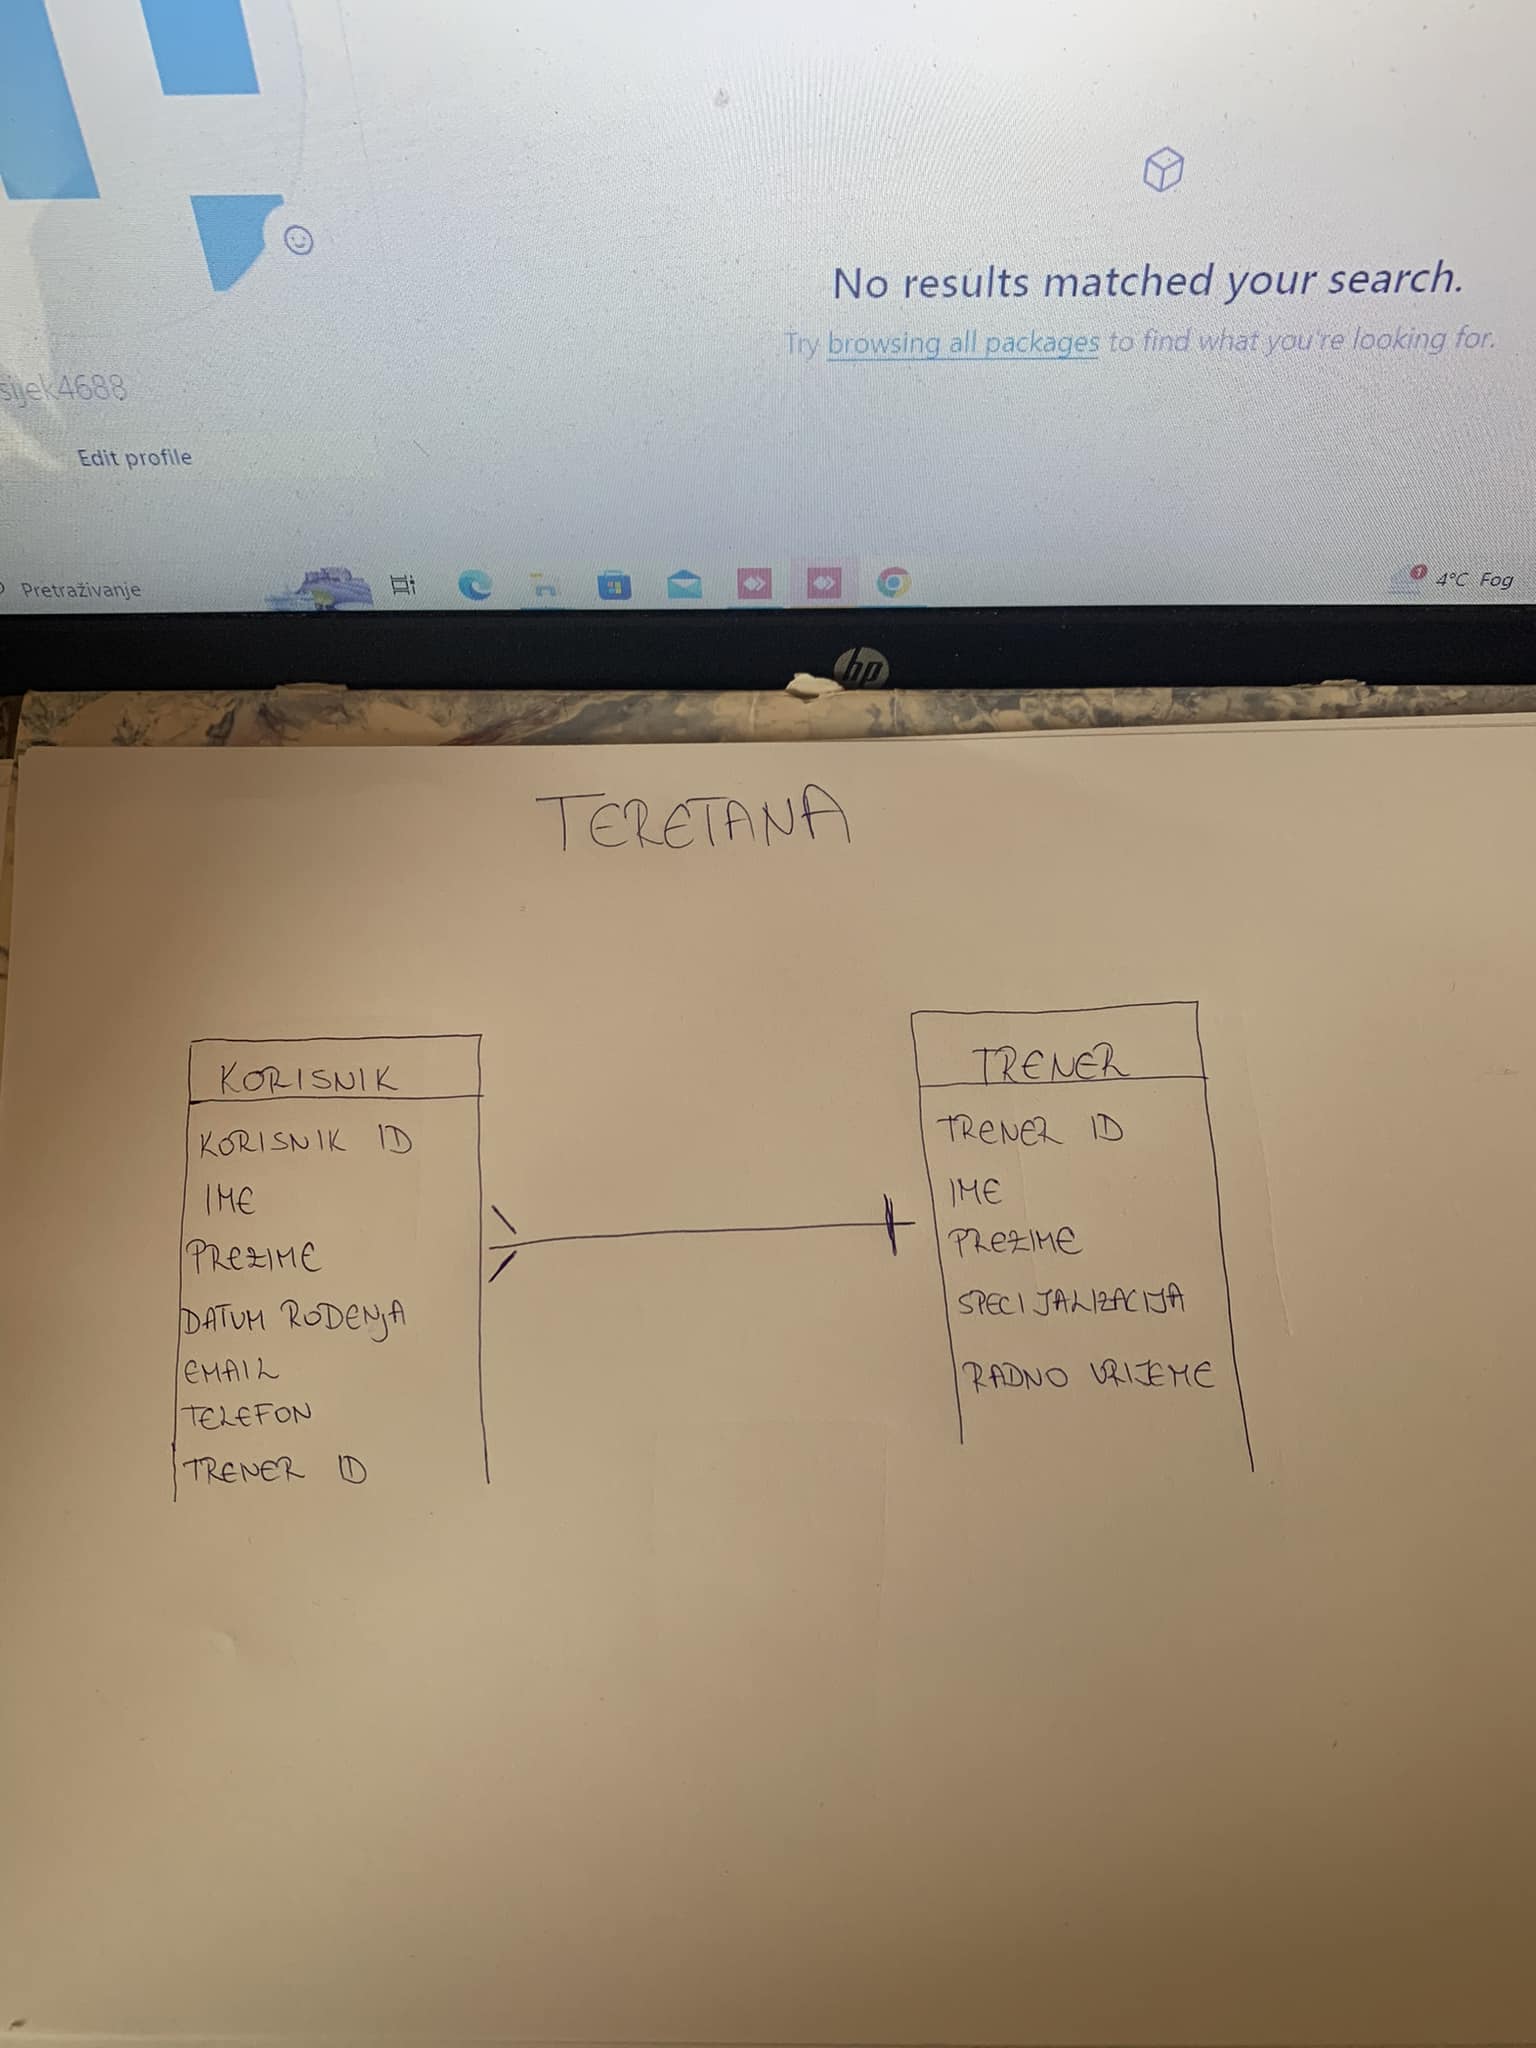 No results matched your search.
Try browsing all packages to find what you're looking for.
sijek4688
Edit profile
Pretraživanje
1
4°C Fog
hp
TERETANA
KORISNIK
KORISNIK ID
IME
PREZIME
DATUM ROĐENJA
EMAIL
TELEFON
TRENER ID
TRENER
TRENER ID
IME
PREZIME
SPECIJALIZACIJA
RADNO VRIJEME